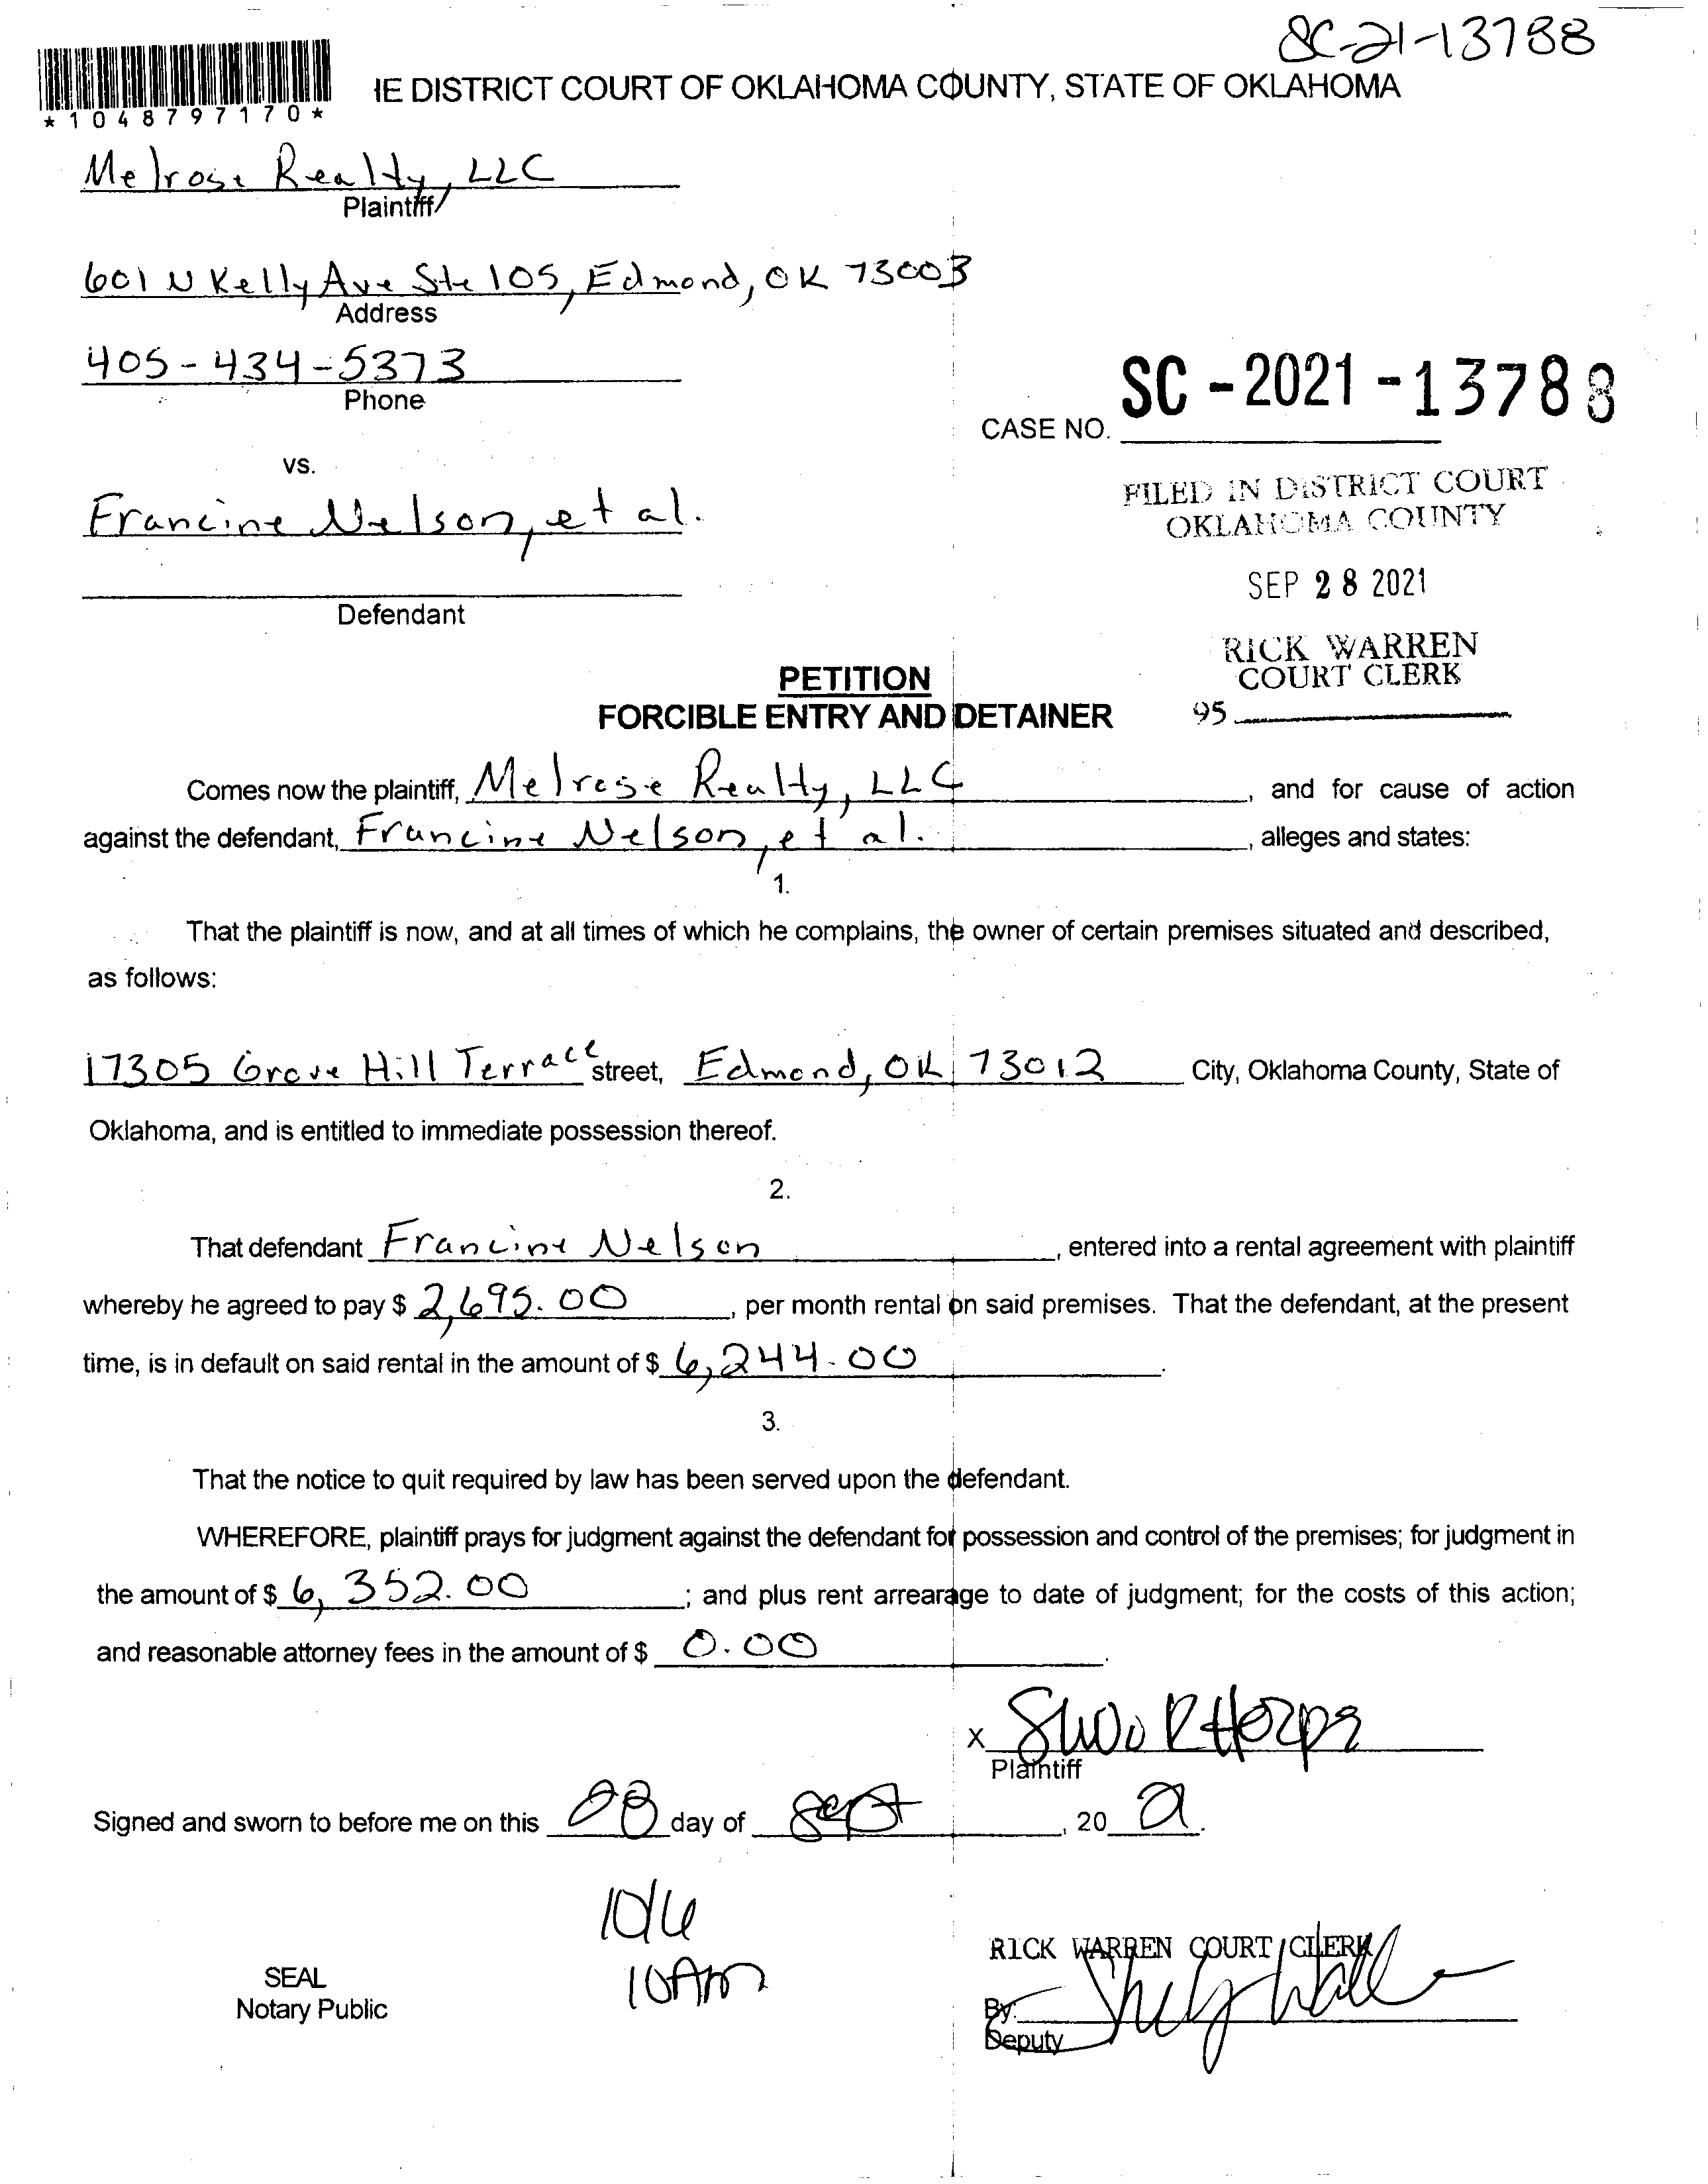 SC-21-13788
IE DISTRICT COURT OF OKLAHOMA COUNTY, STATE OF OKLAHOMA
*1048797170*
Melrose Realty, LLC
Plaintiff
601 N Kelly Ave Ste 105, Edmond, OK 73003
Address
405-434-5373
Phone
CASE NO. SC-2021-13788
vs.
FILED IN DISTRICT COURT
OKLAHOMA COUNTY
Francine Nelson, et al.
SEP 28 2021
Defendant
RICK WARREN
COURT CLERK
95
PETITION
FORCIBLE ENTRY AND DETAINER
Comes now the plaintiff, Melrose Realty, LLC, and for cause of action
against the defendant, Francine Nelson, et al., alleges and states:
1.
That the plaintiff is now, and at all times of which he complains, the owner of certain premises situated and described,
as follows:
17305 Grove Hill Terrace street, Edmond, OK 73012 City, Oklahoma County, State of
Oklahoma, and is entitled to immediate possession thereof.
2.
That defendant Francine Nelson, entered into a rental agreement with plaintiff
whereby he agreed to pay $ 2,695.00, per month rental on said premises. That the defendant, at the present
time, is in default on said rental in the amount of $ 6,244.00.
3.
That the notice to quit required by law has been served upon the defendant.
WHEREFORE, plaintiff prays for judgment against the defendant for possession and control of the premises; for judgment in
the amount of $ 6,352.00; and plus rent arrearage to date of judgment; for the costs of this action;
and reasonable attorney fees in the amount of $ 0.00.
X
Plaintiff
Signed and sworn to before me on this 28 day of Sept, 20 21.
10/6
10Am
RICK WARREN COURT CLERK
SEAL
Notary Public
By:
Deputy